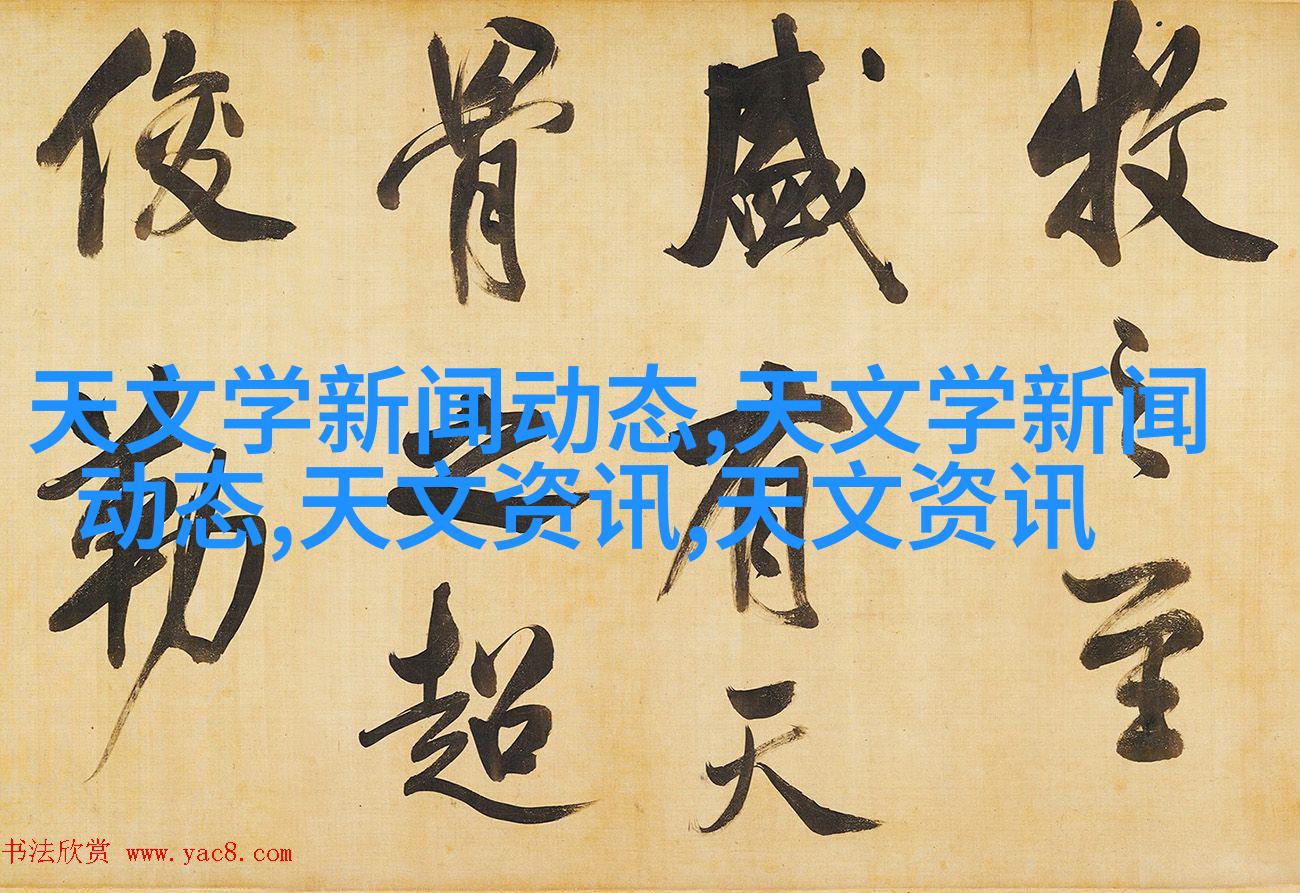 牧之至
盛有天
骨之超
俊勒
天文学新闻动态,天文学新闻
动态,天文资讯,天文资讯
书法欣赏 www.yac8.com